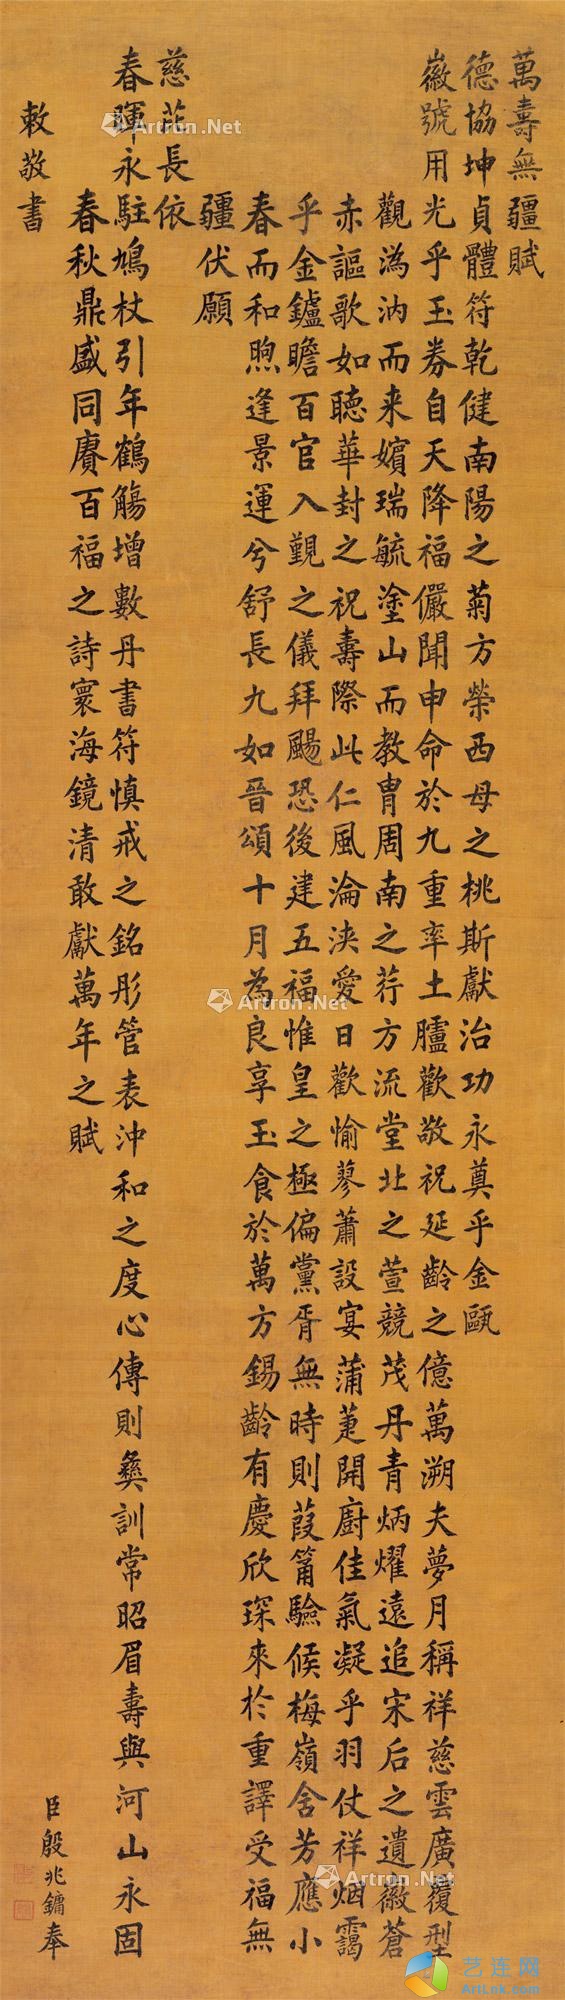 萬壽無疆賦
德協坤貞體符乾健南陽之菊方榮西母之桃斯獻治功永奠乎金甌
徽號用光乎玉券自天降福儼聞申命於九重率土臚歡敬祝延齡之億萬溯夫夢月稱祥慈雲廣覆型
觀溈汭而来嬪瑞毓塗山而教胄周南之荇方流堂北之萱競茂丹青炳燿遠追宋后之遺徽蒼
赤謳歌如聽華封之祝壽際此仁風淪浹愛日歡愉蓼蕭設宴蒲萐開廚佳氣凝乎羽仗祥烟靄
乎金鑪瞻百官入覲之儀拜颺恐後建五福惟皇之極偏黨胥無時則葭筩驗候梅嶺舍芳應小
春而和煦逢景運兮舒長九如晉頌十月為良享玉食於萬方錫齡有慶欣琛來於重譯受福無
疆伏願
慈芘長依
春暉永駐鳩杖引年鶴觴增數丹書符慎戒之銘彤管表沖和之度心傳則彝訓常昭眉壽與河山永固
春秋鼎盛同賡百福之詩寰海鏡清敢獻萬年之賦
臣殷兆鏞奉
敕敬書
Artron.Net
Artron.Net
Artron.Net
Artron.Net
艺连网
ArtLnn.com